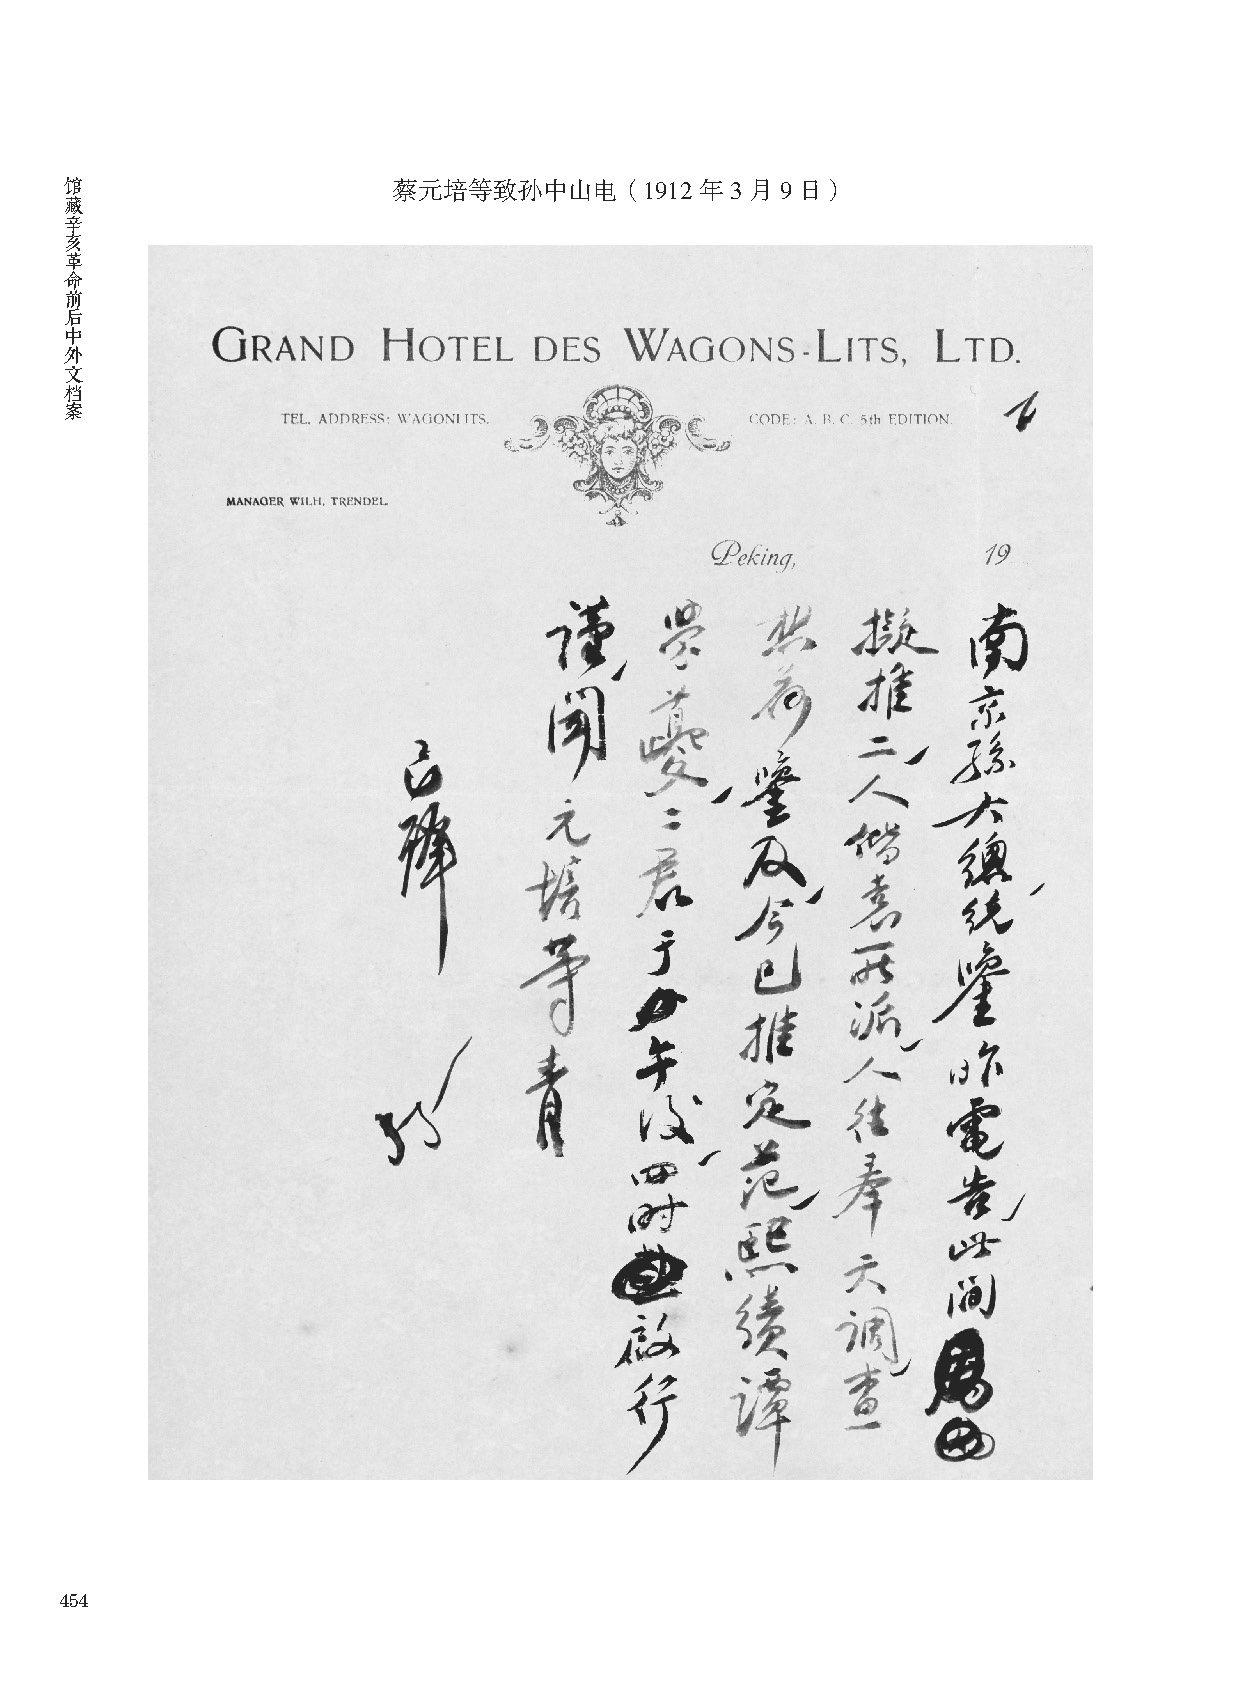 馆藏辛亥革命前后中外文档案
蔡元培等致孙中山电（1912年3月9日）
GRAND HOTEL DES WAGONS-LITS, LTD.
TEL. ADDRESS: WAGONLITS.
CODE: A. B. C. 5th EDITION.
MANAGER WILH. TRENDEL.
Peking, 19
南京孫大總統鑒昨電告此間
擬推二人偕袁所派人往奉天調查
想荷鑒及今已推定范熙績譚
二君于午後四时啟行
謹聞元培等青
454